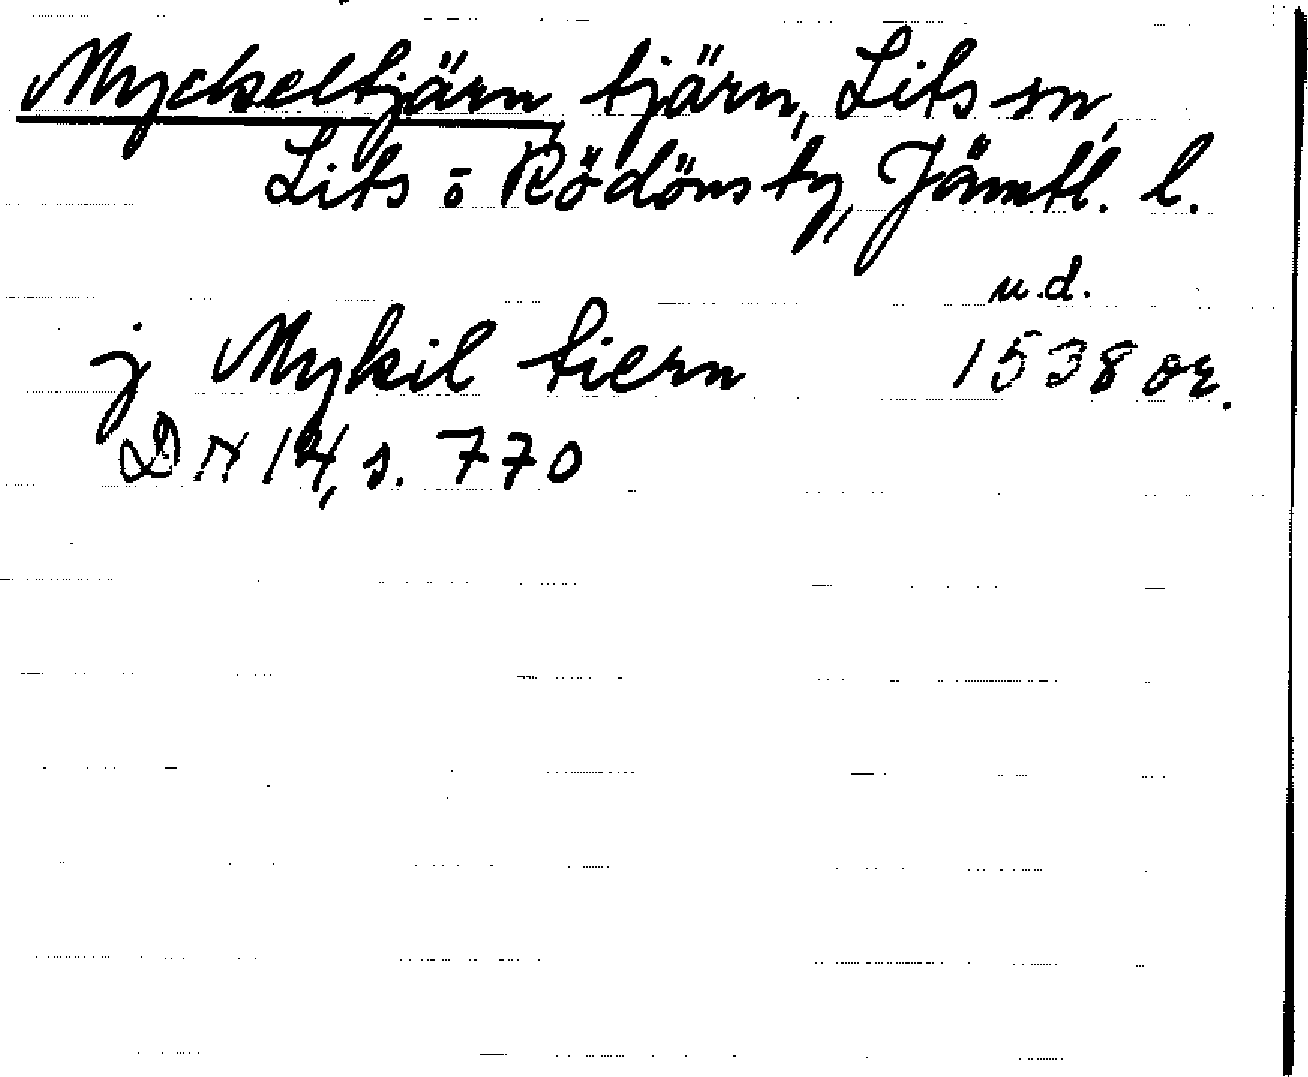 Myckeltjärn, tjärn, Lits sn,
Lits o Rödöns tg, Jämtl. l.
u.d.
j Mykil tiern 1538 or.
DN 14, s. 770